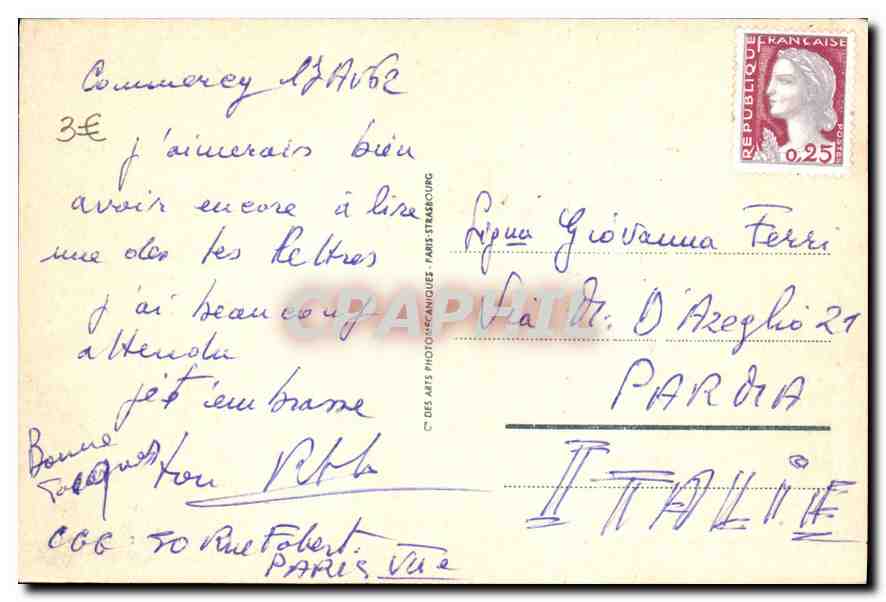 Commercy 17 Av 62
3€
j'aimerais bien
avoir encore à lire
une des tes lettres
j'ai beaucoup
attendu
je t'embrasse
Bonne
ton
CGG 50 Rue Fabert.
PARIS VIIe
Cie DES ARTS PHOTOMÉCANIQUES - PARIS-STRASBOURG
CPAPHIL
RÉPUBLIQUE FRANÇAISE
POSTES
0,25
Signa Giovanna Ferri
Via M. D'Azeglio 21
PARMA
ITALIE